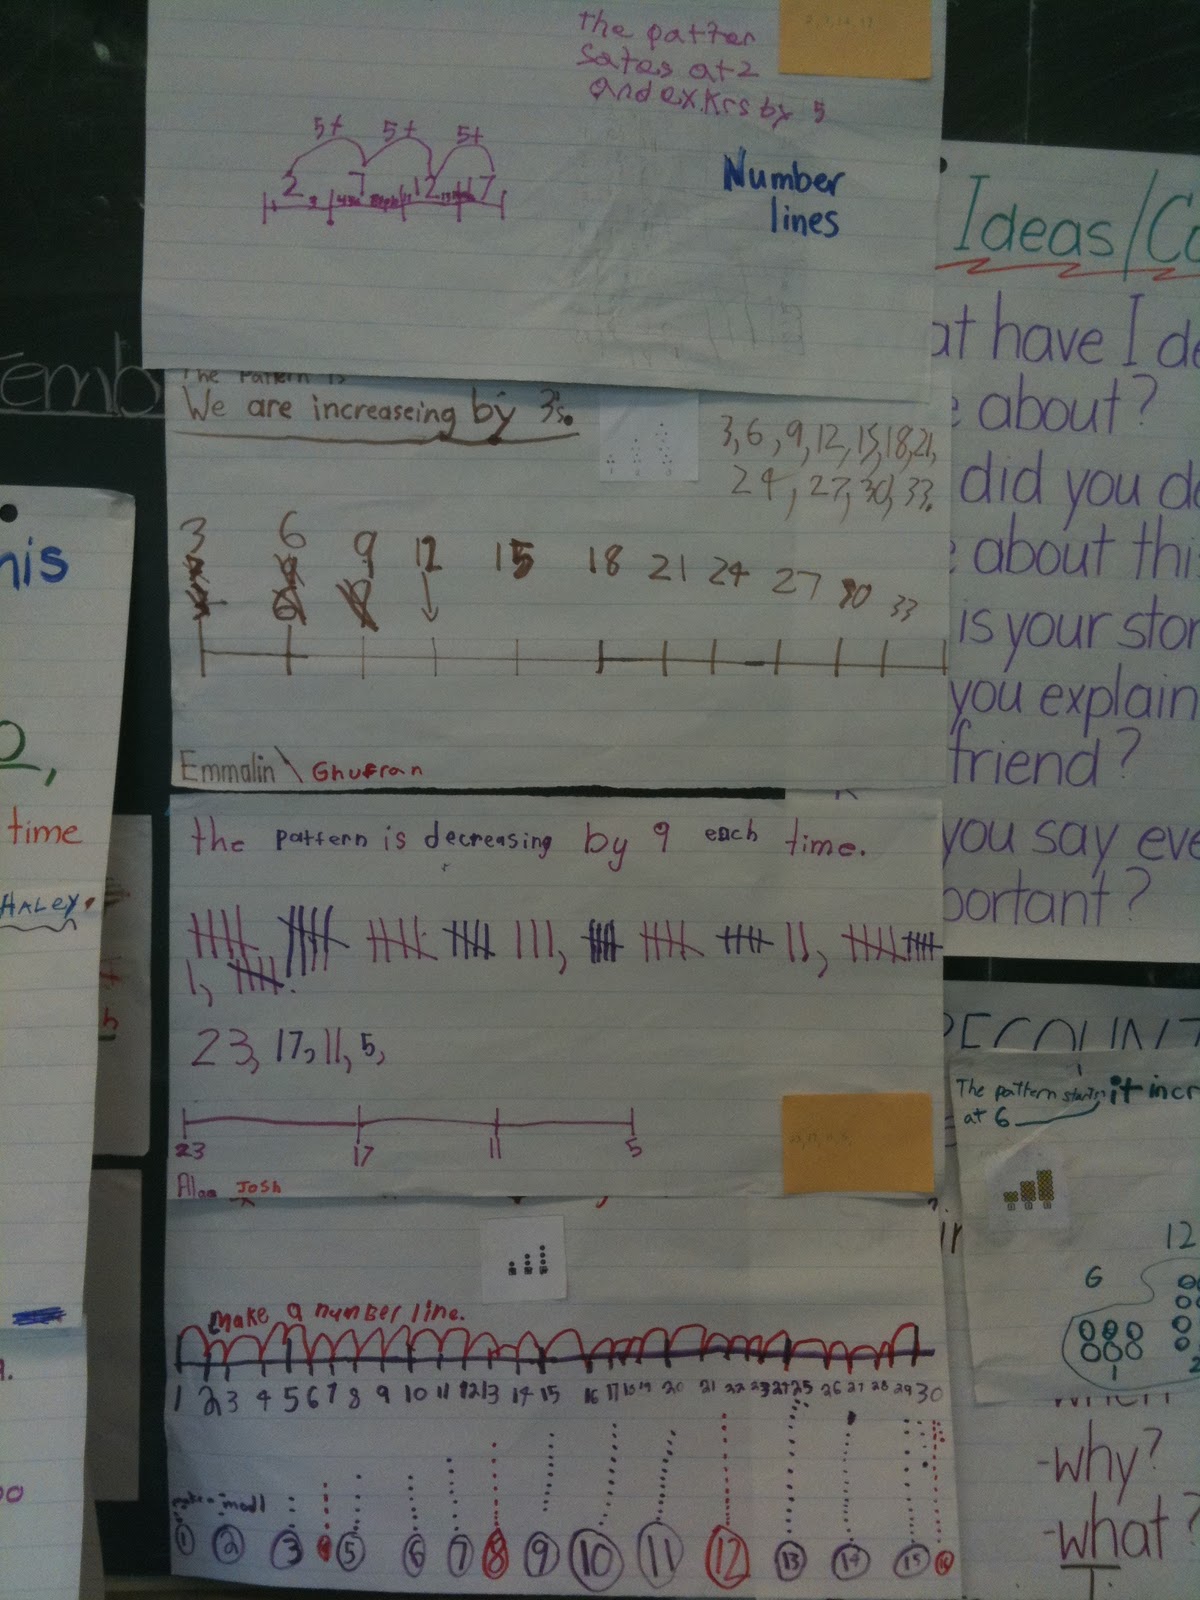 the patter
Sates at 2
and ex.Krs by 5
5+ 5+ 5+
2 7 12 17
Number
lines
Ideas/Co
at have I de
e about?
did you do
e about thi
is your stor
you explain
friend?
you say eve
portant?
emb
The Pattern is
We are increaseing by 3's.
3, 6, 9, 12, 15, 18, 21,
24, 27, 30, 33.
3 6 9 12 15 18 21 24 27 30 33
Emmalin \ Ghufran
his
time
HALEY.
the pattern is decreasing by 9 each time.
23, 17, 11, 5,
23 17 11 5
Josh
make a number line.
1 2 3 4 5 6 7 8 9 10 11 12 13 14 15 16 17 18 19 20 21 22 23 24 25 26 27 28 29 30
1 2 3 4 5 6 7 8 9 10 11 12 13 14 15 16
RECOUNT
The pattern starts it incr
at 6
6 12
1 2
-why?
-what?